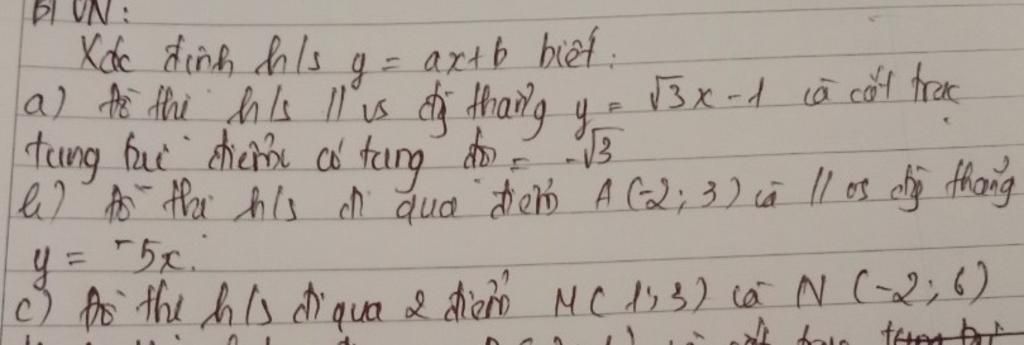 BTVN:
Xác định h/s y = ax+b biết:
a) đồ thị h/s // vs đg thẳng y = √3x - 1 và cắt trục
tung tại điểm có tung độ = -√3
b) Đồ thị h/s đi qua điểm A(-2; 3) và // vs đg thẳng
y = -5x.
c) Đồ thị h/s đi qua 2 điểm M(1; 3) và N(-2; 6)